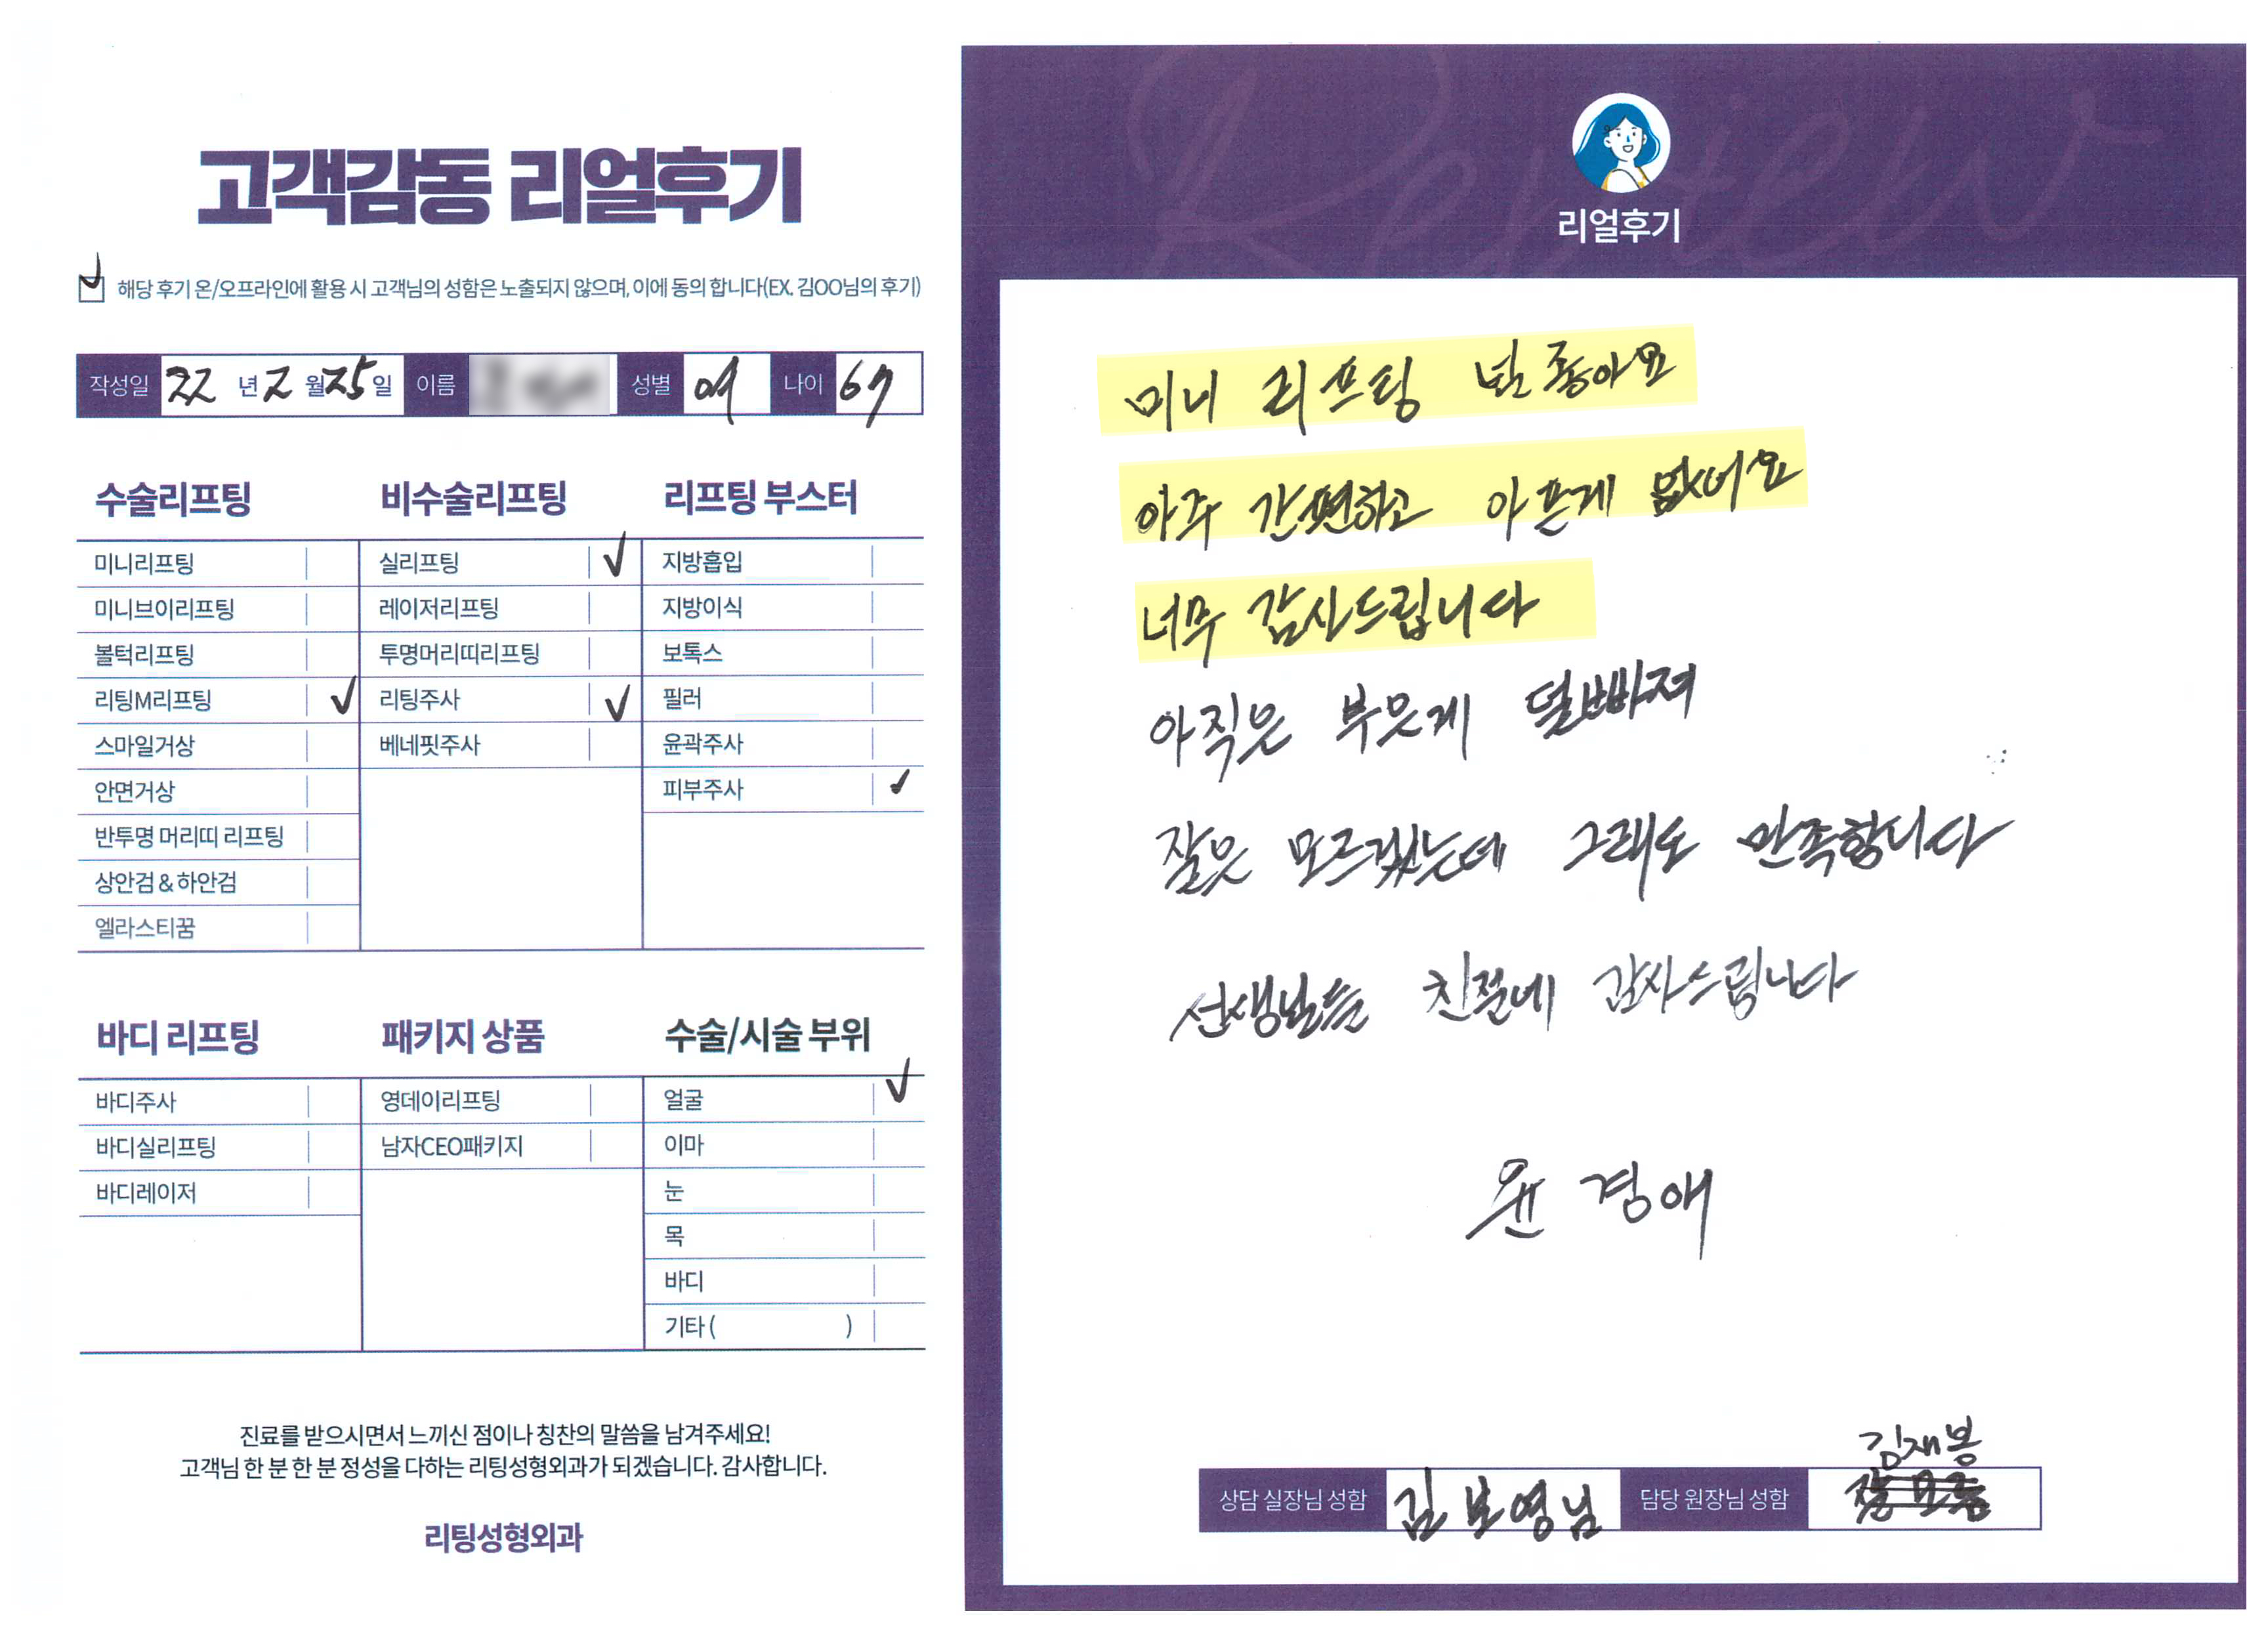 고객감동 리얼후기
해당 후기 온/오프라인에 활용 시 고객님의 성함은 노출되지 않으며, 이에 동의 합니다(EX. 김OO님의 후기)
작성일 22 년 2 월 25 일 이름 성별 여 나이 67
수술리프팅
미니리프팅
미니브이리프팅
볼턱리프팅
리팅M리프팅
스마일거상
안면거상
반투명 머리띠 리프팅
상안검 & 하안검
엘라스티꿈
비수술리프팅
실리프팅
레이저리프팅
투명머리띠리프팅
리팅주사
베네핏주사
리프팅 부스터
지방흡입
지방이식
보톡스
필러
윤곽주사
피부주사
바디 리프팅
바디주사
바디실리프팅
바디레이저
패키지 상품
영데이리프팅
남자CEO패키지
수술/시술 부위
얼굴
이마
눈
목
바디
기타 ( )
진료를 받으시면서 느끼신 점이나 칭찬의 말씀을 남겨주세요!
고객님 한 분 한 분 정성을 다하는 리팅성형외과가 되겠습니다. 감사합니다.
리팅성형외과
Review
리얼후기
미니 리프팅 좋아요
아주 간편하고 아픈게 없어요
너무 감사드립니다
아직은 부은게 덜빠져
잘은 모르겠는데 그래도 만족합니다
선생님들 친절에 감사드립니다
윤경애
김재봉
상담 실장님 성함 김보영님 담당 원장님 성함